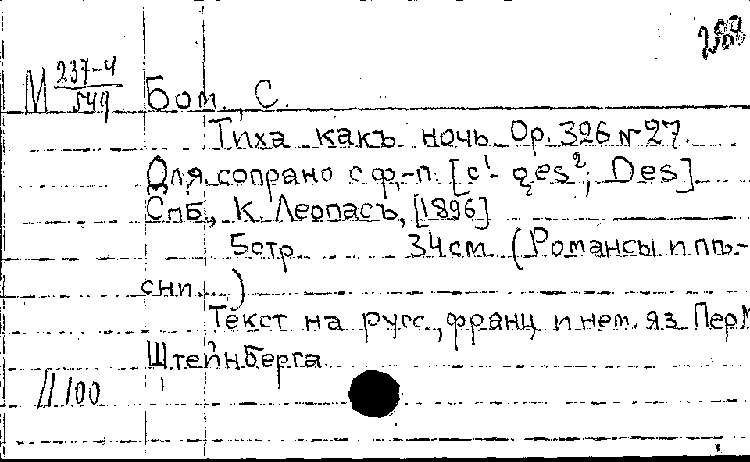 288
М 237-4/549
Бом, С.
Тиха какъ ночь. Ор. 326 № 27.
Для сопрано с ф.-п. [c¹- ges²; Des].
Спб., К. Леопасъ, [1896]
5 стр. 34 см. (Романсы и пѣ-
сни...)
Текст на русс., франц. и нем. яз. Пер. М
Штейнберга
11100